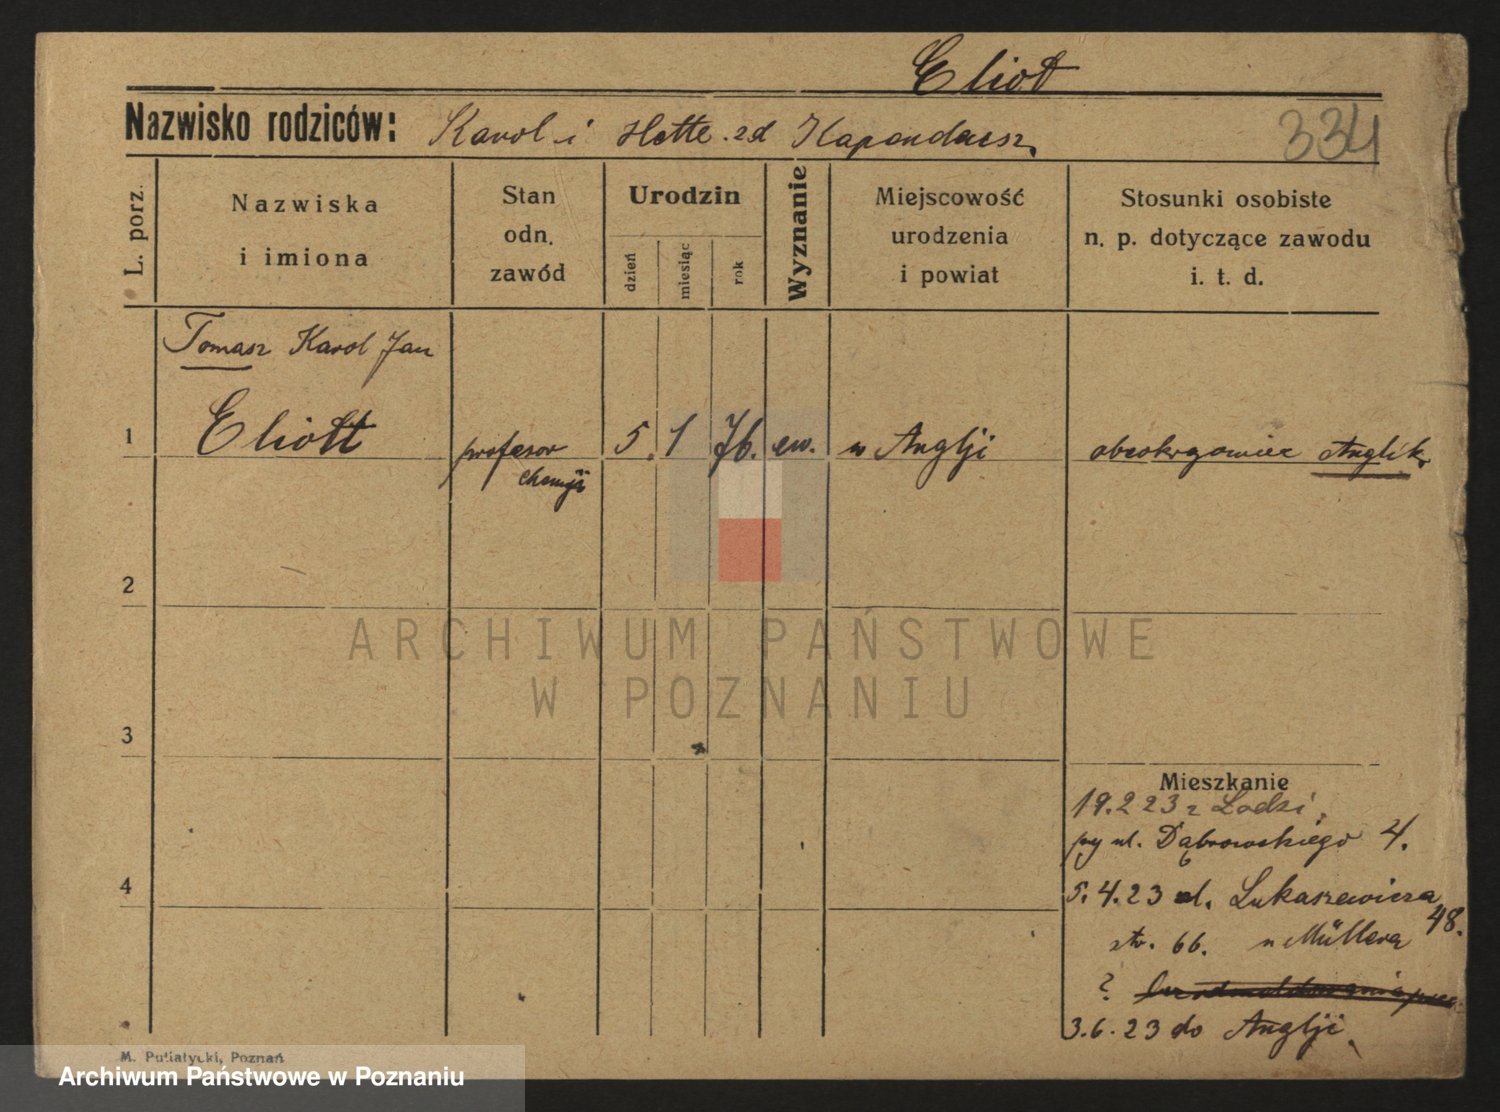 Eliot
Nazwisko rodziców: Karol i Hette zd Kapendaesz.
334
L. porz.
Nazwiska
i imiona
Stan
odn.
zawód
Urodzin
dzień
miesiąc
rok
Wyznanie
Miejscowość
urodzenia
i powiat
Stosunki osobiste
n. p. dotyczące zawodu
i. t. d.
Tomasz Karol Jan
1 Eliott profesor 5. 1 76. ew. w Anglji obcokrajowiec Anglik.
chemji
2
ARCHIWUM PAŃSTWOWE
W POZNANIU
3
Mieszkanie
19.2 23 z Lodzi.
py ul. Dąbrowskiego 4.
4
5.4.23 ul. Łukaszewicza 48.
str. 66. u Müllera
?
3.6.23 do Anglji.
M. Putiatycki, Poznań
Archiwum Państwowe w Poznaniu